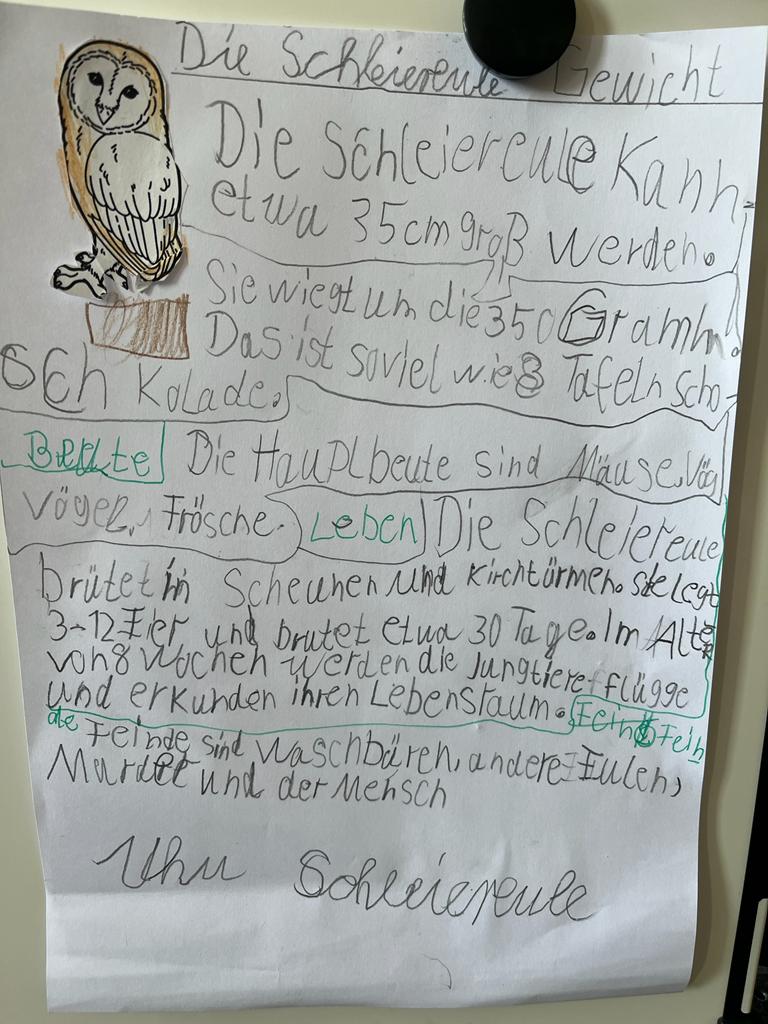 Die Schleiereule Gewicht
Die Schleiereule kann
etwa 35cm groß werden.
Sie wiegt um die 350 Gramm.
Das ist soviel wie 3 Tafeln Scho-
sch kolade.
Beute Die Hauptbeute sind Mäuse, Vög
Vögel, Frösche. Leben Die Schleiereule
brütet in Scheunen und Kirchtürmen. Sie legt
3-12 Eier und brutet etwa 30 Tage. Im Alter
von 8 Wochen werden die Jungtiere flügge
und erkunden ihren Lebensraum. Feinde Fein
de Feinde sind Waschbären, andere Eulen,
Marder und der Mensch
Uhu Schleiereule